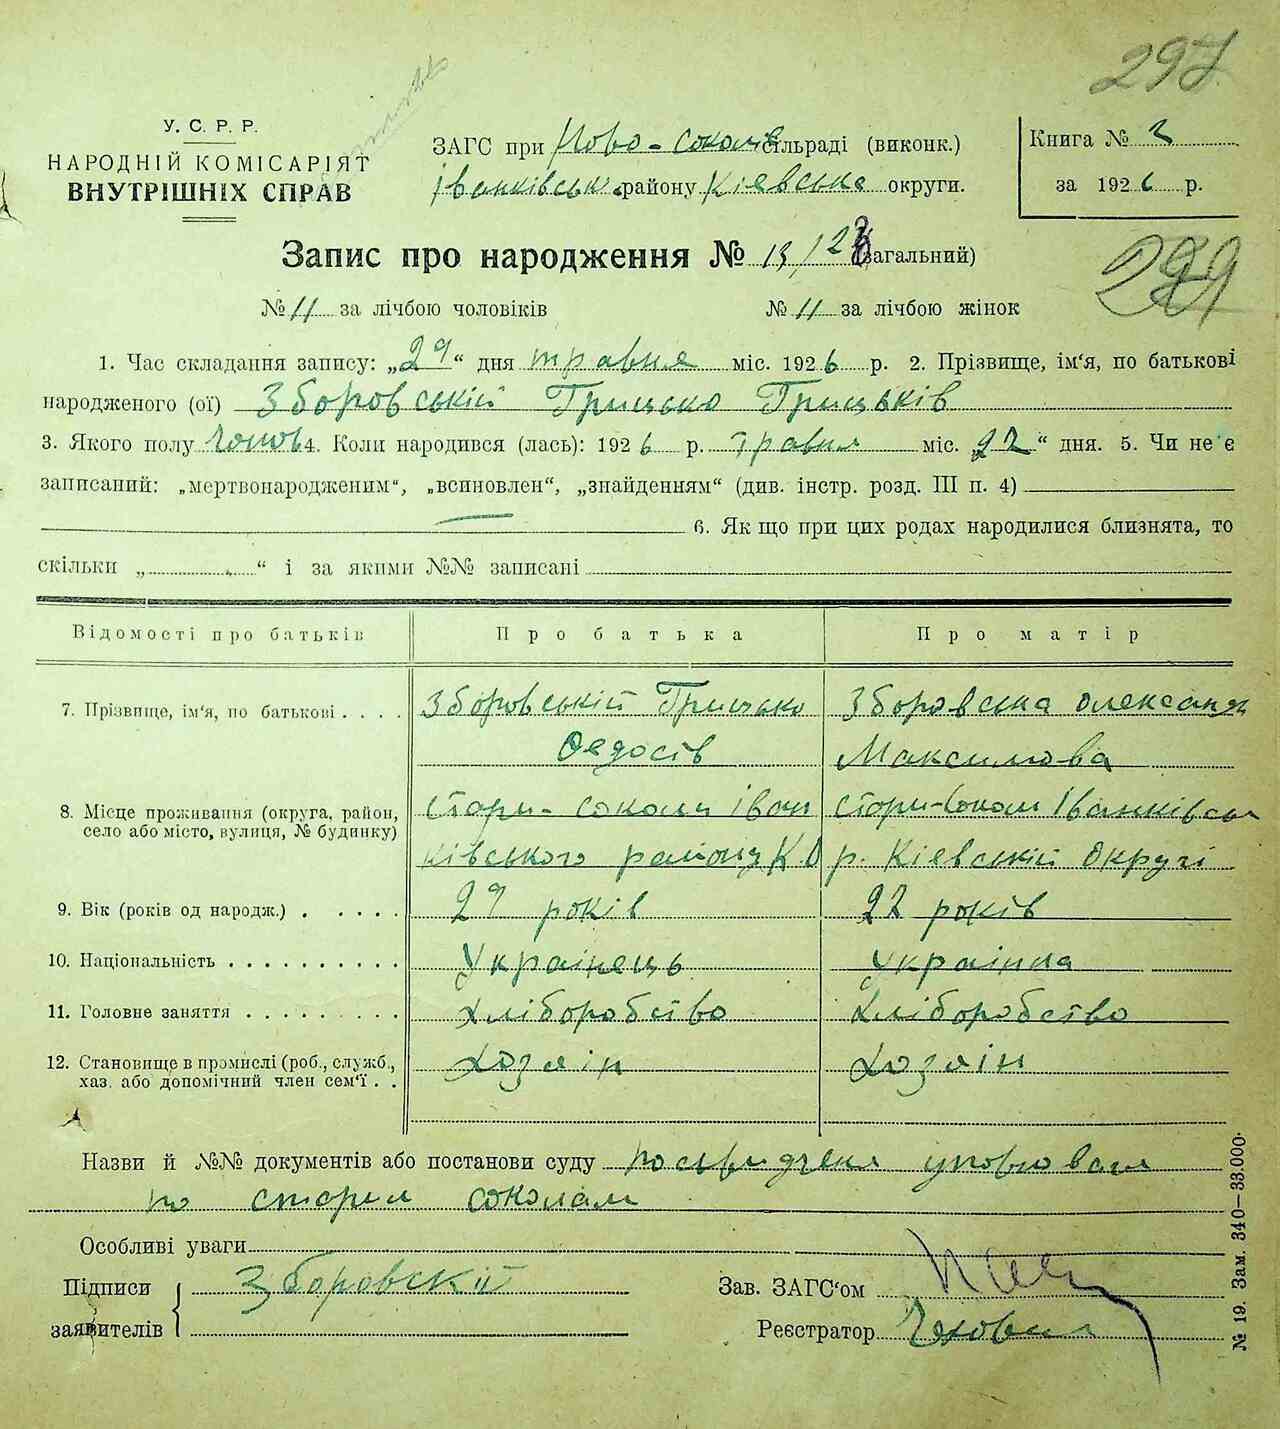 297
У. С. Р. Р.
НАРОДНІЙ КОМІСАРІЯТ
ВНУТРІШНІХ СПРАВ
ЗАГС при Ново-соколів сільраді (виконк.)
Іванківськ. району Кіевська округи.
Книга № 2
за 1926 р.
Запис про народження № 13/123 (загальний)
299
№ 11 за лічбою чоловіків № 11 за лічбою жінок
1. Час складання запису: „29“ дня травня міс. 1926 р. 2. Прізвище, ім'я, по батькові
народженого (ої) Зборовській Грицько Грицьків
3. Якого полу Чолов 4. Коли народився (лась): 1926 р. травня міс. „22“ дня. 5. Чи не є
записаний: „мертвонародженим“, „всиновлен“, „знайденням“ (див. інстр. розд. III п. 4)
6. Як що при цих родах народилися близнята, то
скільки „ “ і за якими №№ записані
Відомості про батьків Про батька Про матір
7. Прізвище, ім'я, по батькові . . . . Зборовській Грицько Зборовська Олександ
Федосів Максимова
8. Місце проживання (округа, район, село або місто, вулиця, № будинку) стари-соколи іван стари-сокол Іванківськ
ківського району К.О р. Кіевській округі
9. Вік (років од народж.) . . . . . 29 років 22 років
10. Національність . . . . . . . . . . Украінець украінка
11. Головне заняття . . . . . . . . . хліборобство хліборобство
12. Становище в промислі (роб., служб., хаз. або допомічний член сем'ї . . хозяін хозяін
Назви й №№ документів або постанови суду посвидченя уповноваж
по старим соколам
Особливі уваги
Підписи
заявителів
Зборовскій
Зав. ЗАГС'ом
Реєстратор
№ 19. Зам. 340—33.000.